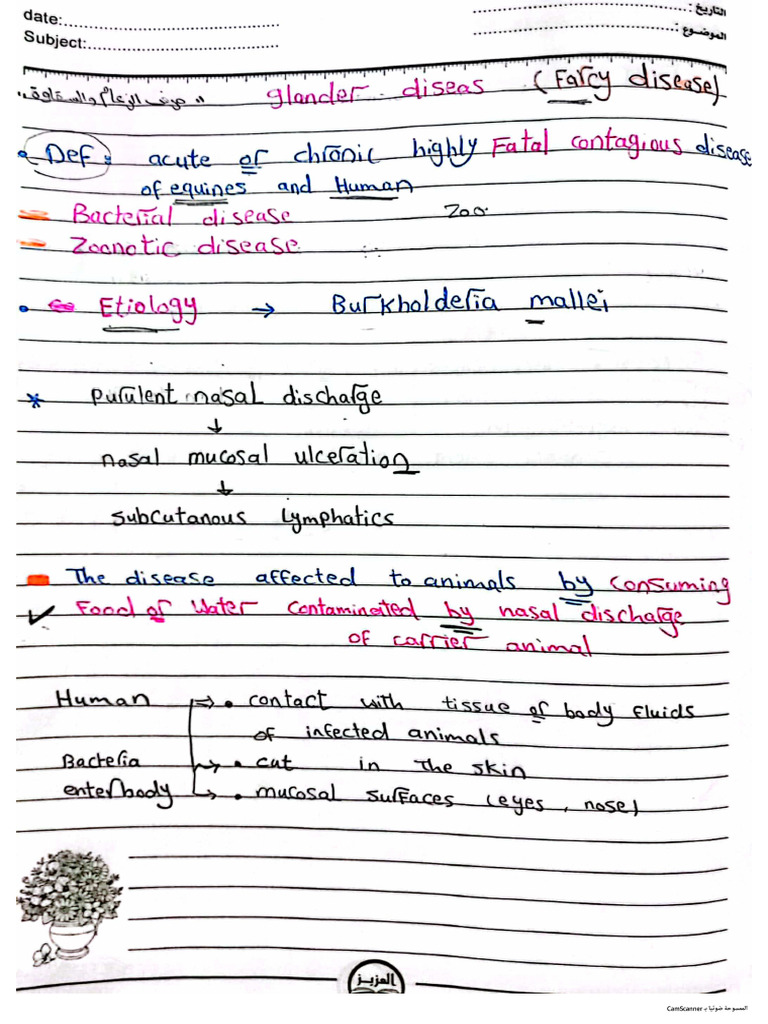 date:
التاريخ :
Subject:
الموضوع :
glander diseas (Farcy disease)
"مرض الرعام والسقاوة"
• Def: acute or chronic highly Fatal contagious disease
of equines and Human
- Bacterial disease Zoo
- Zoonotic disease
• Etiology → Burkholderia mallei
* purulent nasal discharge
↓
nasal mucosal ulceration
↓
subcutanous lymphatics
The disease affected to animals by consuming
✓ Food or water contaminated by nasal discharge
of carrier animal
Human ⇒ • contact with tissue or body fluids
of infected animals
Bacteria → • cut in The skin
enter body → • mucosal surfaces (eyes, nose)
العزيز
الممسوحة ضوئيا بـ CamScanner